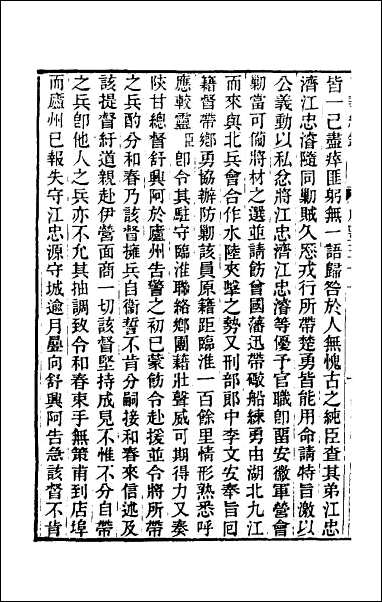 皆一己盡瘁匪躬無一語歸咎於人無愧古之純臣查其弟江忠
濟江忠濬隨同勦賊久厯戎行所帶楚勇皆能用命請特旨激以
公義動以私忿將江忠濟江忠濬等優予官職卽留安徽軍營會
勦當可備將材之選並請飭曾國藩迅帶礮船練勇由湖北九江
而來與北兵會合作水陸夾擊之勢又刑部郎中李文安奉旨回
籍督帶鄉勇協辦防勦該員原籍距臨淮一百餘里情形熟悉呼
應較靈臣卽令其駐守臨淮聯絡鄉團藉壯聲威可期得力又奏
陝甘總督舒興阿於廬州告警之初已蒙飭令赴援並令將所帶
之兵酌分和春乃該督擁兵自衞誓不肯分嗣接和春來信述及
該提督紆道親赴伊營面商一切該督堅持成見不惟不分自帶
之兵卽他人之兵亦不允其抽調致令和春束手無策甫到店埠
而廬州已報失守江忠源守城逾月屢向舒興阿告急該督不肯